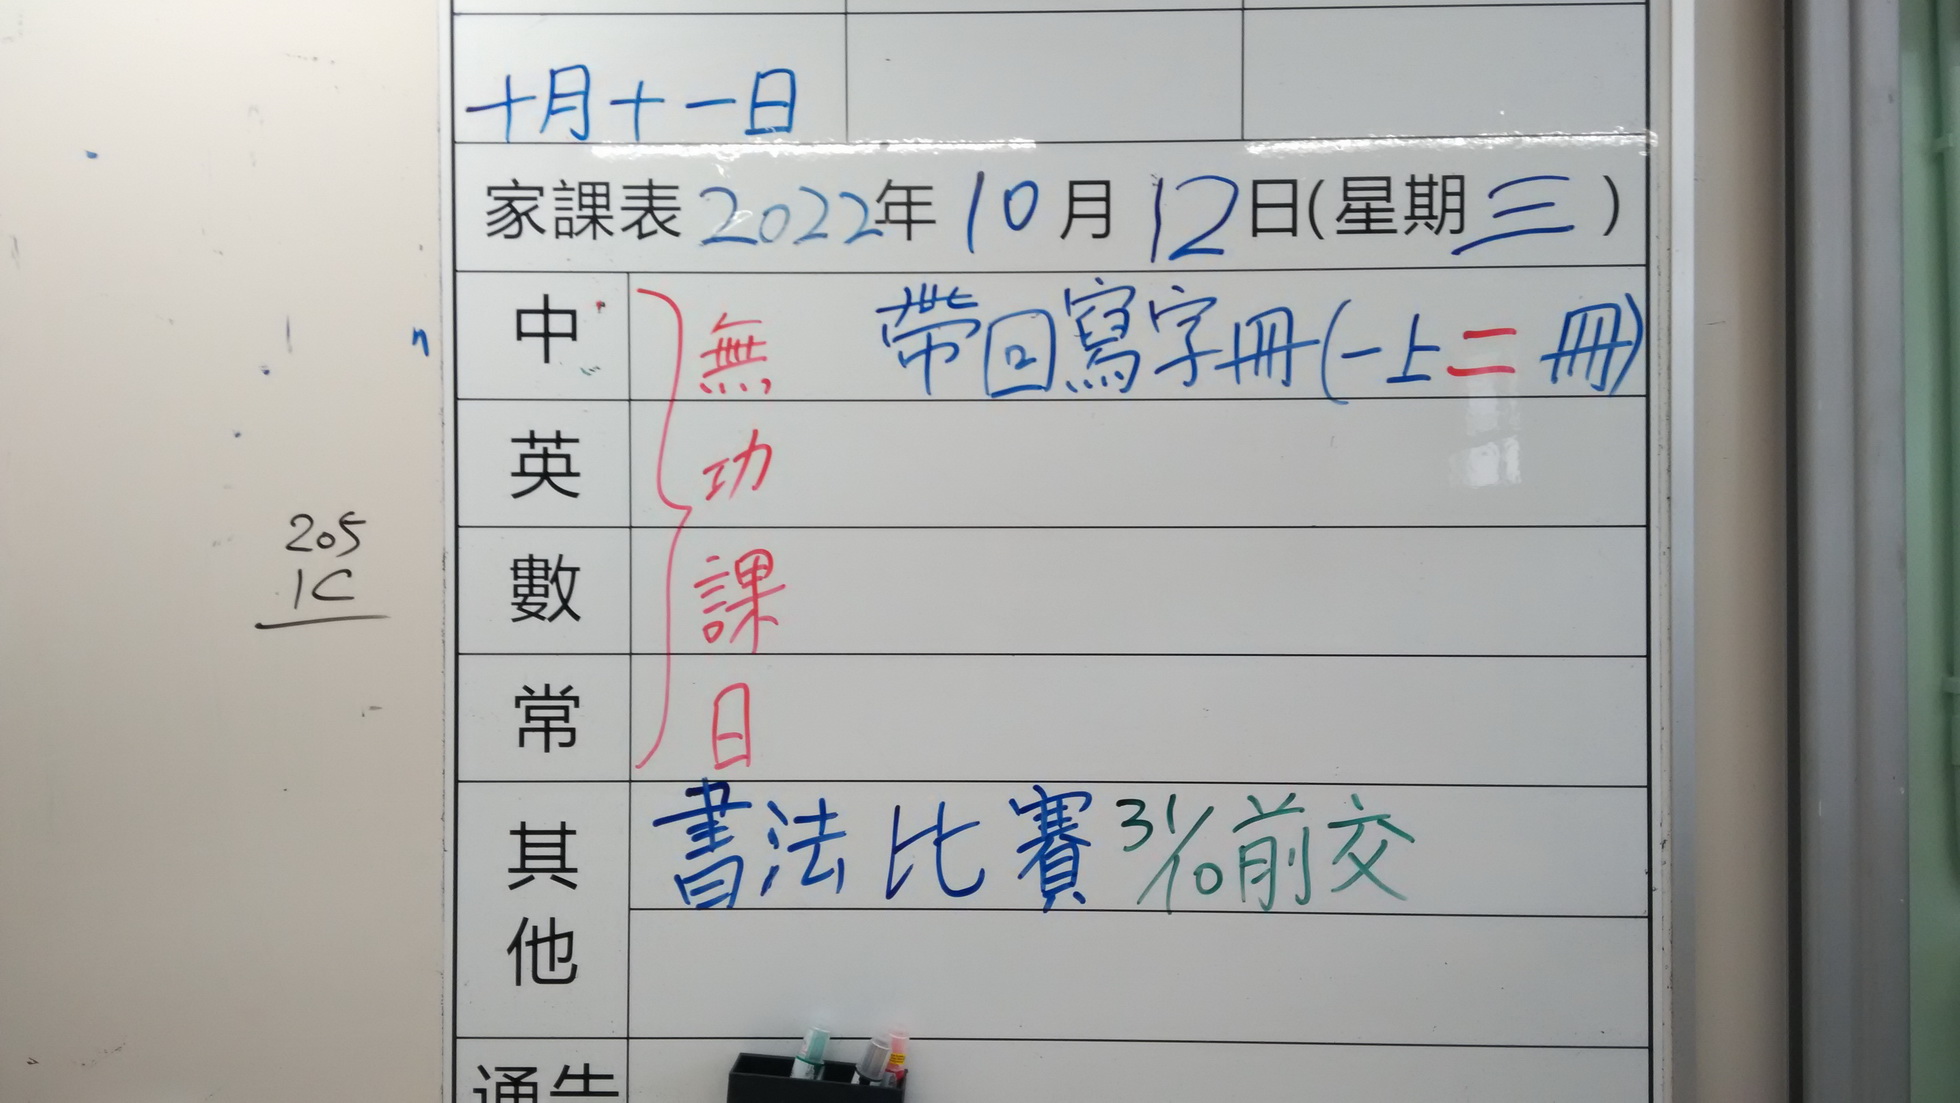 十月十一日
家課表 2022年 10月 12日(星期三)
中 無 帶回寫字冊(一上二冊)
英 功
數 課
常 日
其他 書法比賽 31/10前交
通告
205
1C